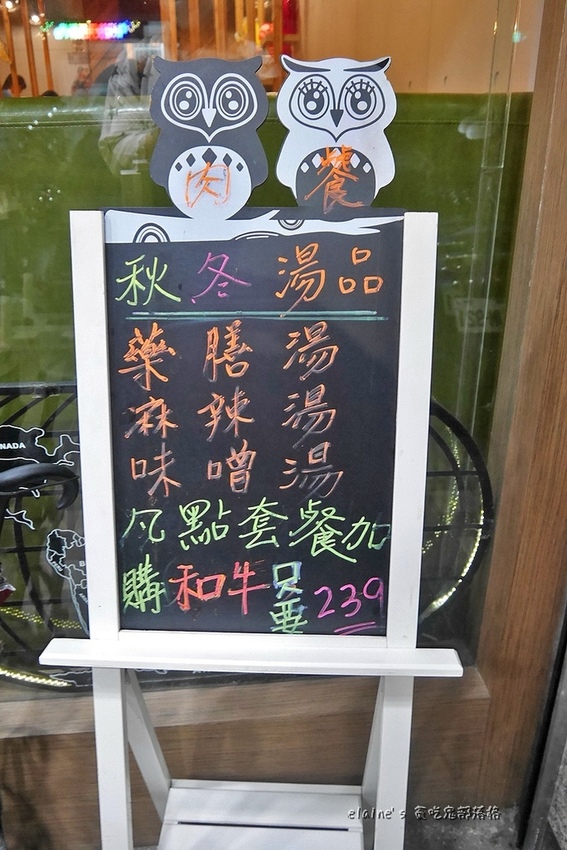 肉 餐
秋冬 湯品
藥膳湯
麻辣湯
味噌湯
凡點套餐加
購和牛只要239
NADA
elaine's 貪吃鬼部落格